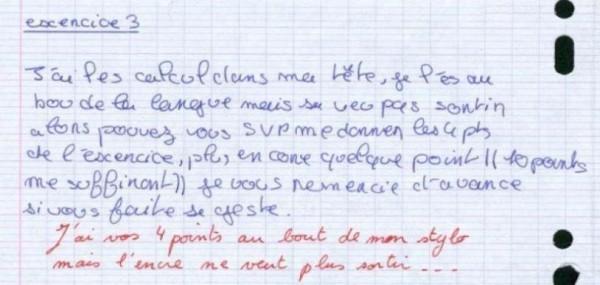 exencice 3
J'ai les calcul dans ma tête, je l'es au
bou de la langue mais sa veu pas sortin
alors pouvez vous SVP me donnen les 4 pts
de l'exencice, plus, encone quelque point (( 10 points
me suffinont)) je vous remencie d'avance
si vous faite se geste.
J'ai vos 4 points au bout de mon stylo
mais l'encre ne veut plus sortir ...